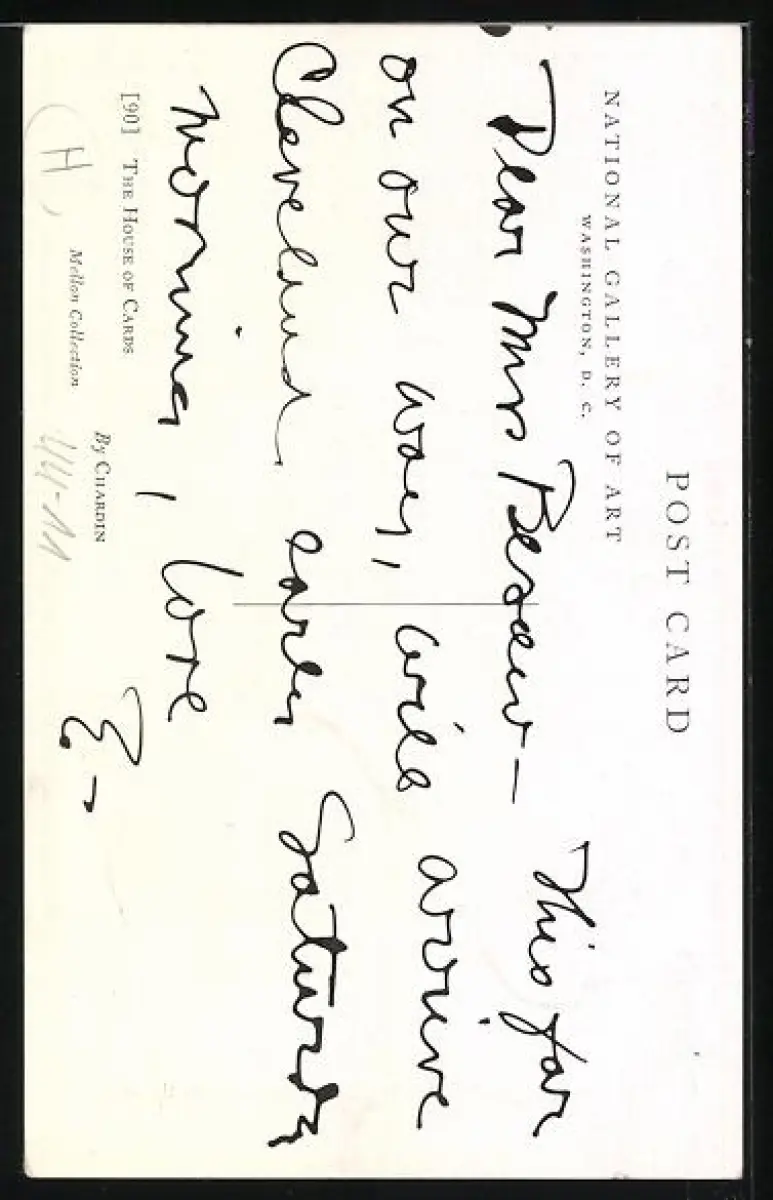 POST CARD
NATIONAL GALLERY OF ART
WASHINGTON, D. C.
Dear Mrs — This far
on our way, will arrive
Cleveland early Saturday
morning, Love
E—
[90] THE HOUSE OF CARDS
By CHARDIN
Mellon Collection
(H,